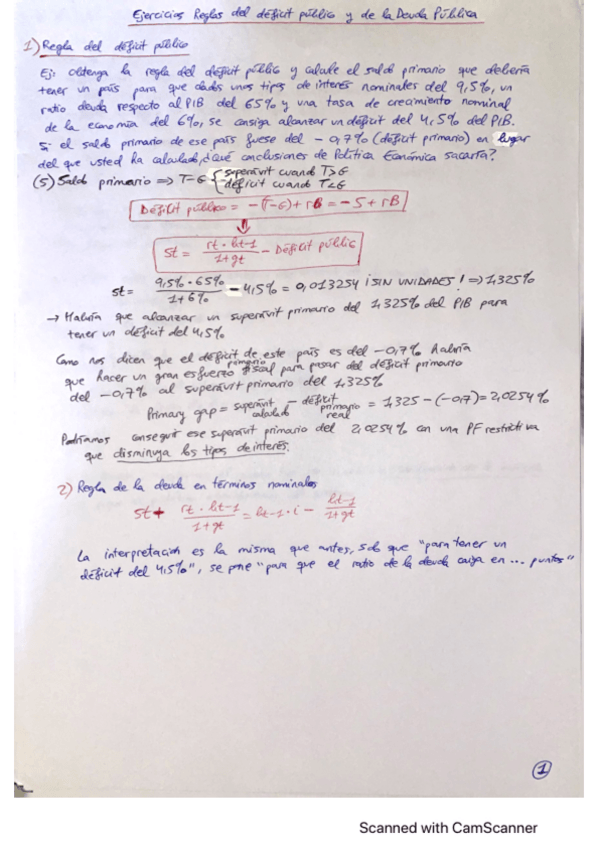 Ejercicios Reglas del déficit público y de la Deuda Pública
1) Regla del déficit público
Ej: obtenga la regla del déficit público y calcule el saldo primario que debería
tener un país para que dados unos tipos de interés nominales del 9,5%, un
ratio deuda respecto al PIB del 65% y una tasa de crecimiento nominal
de la economía del 6%, se consiga alcanzar un déficit del 4,5% del PIB.
Si el saldo primario de ese país fuese del -0,7% (déficit primario) en lugar
del que usted ha calculado, ¿Qué conclusiones de Política Económica sacaría?
(S) Saldo primario ⇒ T-G { superávit cuando T>G
déficit cuando T<G
Déficit público = -(T-G) + rB = -S + rB
St = rt · bt-1 / 1+gt - Déficit públic
st = 9,5% · 65% / 1+6% - 4,5% = 0,013254 ¡SIN UNIDADES! ⇒ 1,325%
→ Habría que alcanzar un superávit primario del 1,325% del PIB para
tener un déficit del 4,5%
Como nos dicen que el déficit primario de este país es del -0,7% habría
que hacer un gran esfuerzo fiscal para pasar del déficit primario
del -0,7% al superávit primario del 1,325%
Primary gap = superávit calculado - déficit primario real = 1,325 - (-0,7) = 2,0254%
Podríamos conseguir ese superávit primario del 2,0254% con una PF restrictiva
que disminuya los tipos de interés.
2) Regla de la deuda en términos nominales
St + rt · bt-1 / 1+gt = bt-1 · i - bt-1 / 1+gt
La interpretación es la misma que antes, solo que "para tener un
déficit del 4,5%", se pone "para que el ratio de la deuda caiga en ... puntos"
1
Scanned with CamScanner